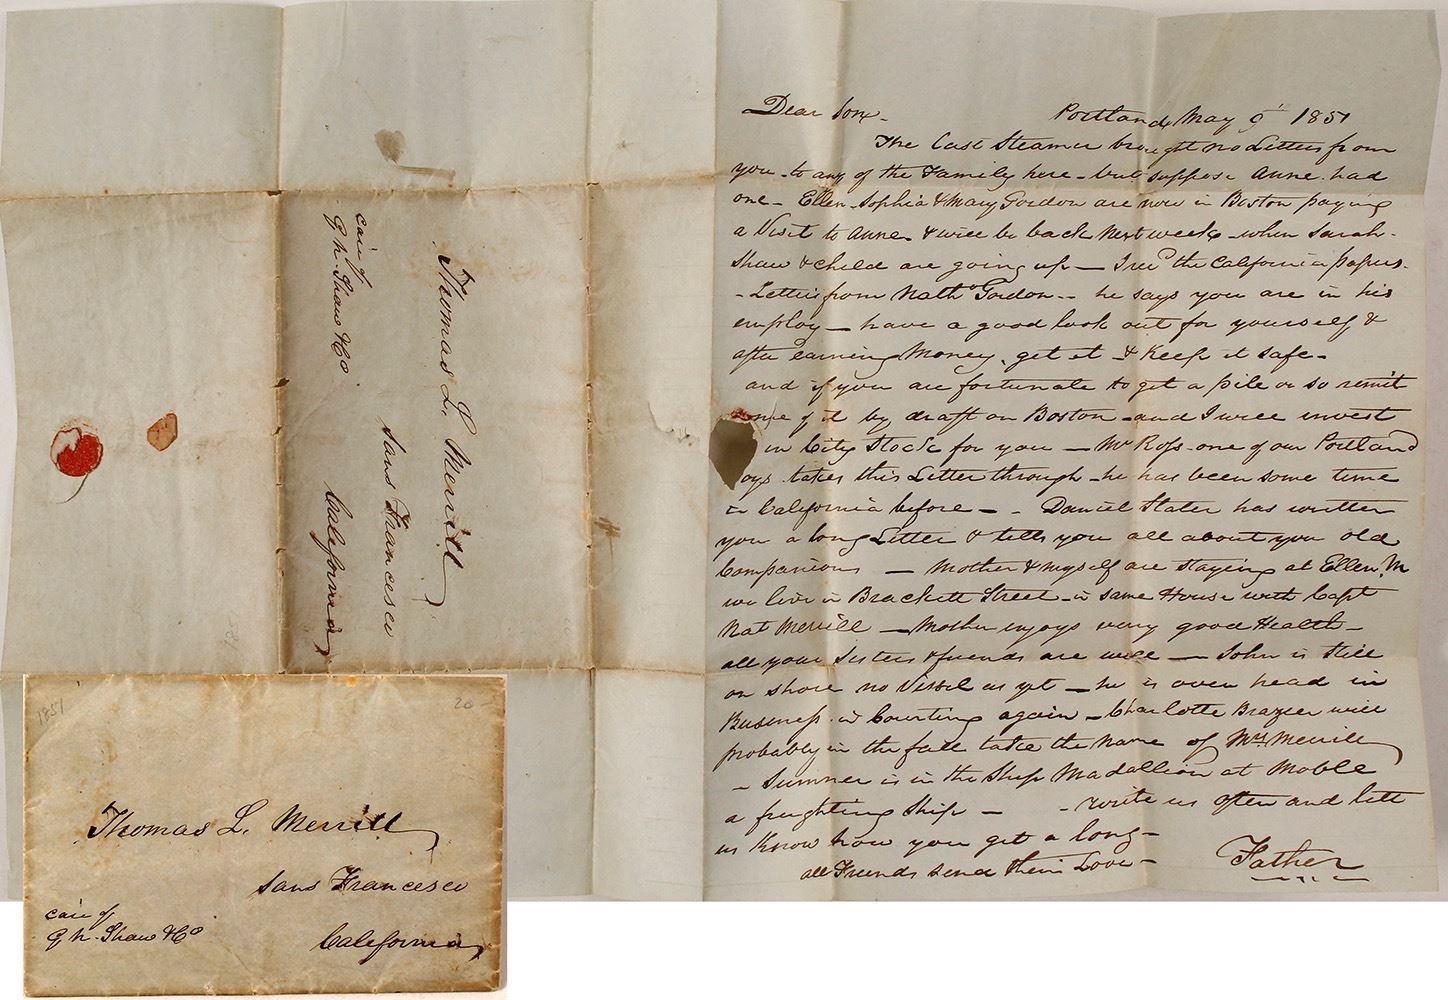 Dear Son - Portland May 9 1851
The Last Steamer brought no Letters from
you - to any of the Family here - but suppose Anne had
one - Ellen - Sophia & Mary Gordon are now in Boston paying
a Visit to Anne & will be back Next week - when Sarah -
Shaw & child are going up - I recd the California papers -
- Letters from Nathl Gordon - he says you are in his
employ - have a good look out for yourself &
after earning Money, get it & Keep it safe -
and if you are fortunate to get a pile or so remit
me of it by draft on Boston - and I will invest
in City Stock for you - Mr Ross one of our Portland
oys takes this Letter through - he has been some time
in California before - - Daniel Slater has written
you a long Letter & tells you all about you old
Companions - Mother & myself are staying at Ellen M
we live in Brackett Street - in same House with Capt
Nat Merrill - Mother enjoys very good Health -
all your Sisters & friends are well - John is Still
on shore no Vessel as yet - he is over head in
Business in Courting again - Charlotte Brazier will
probably in the fall take the Name of Mrs Merrill
- Sumner is in the Ship Madallion at Moble
a freighting Ship - - write us often and lett
us Know how you get a long -
all Friends send their Love - Father
Thomas L. Merrill
Sans Francesco
California
care of
G h. Shaw & Co
1851
20 -
Thomas L. Merrill
Sans Francesco
care of
G h. Shaw & Co
California